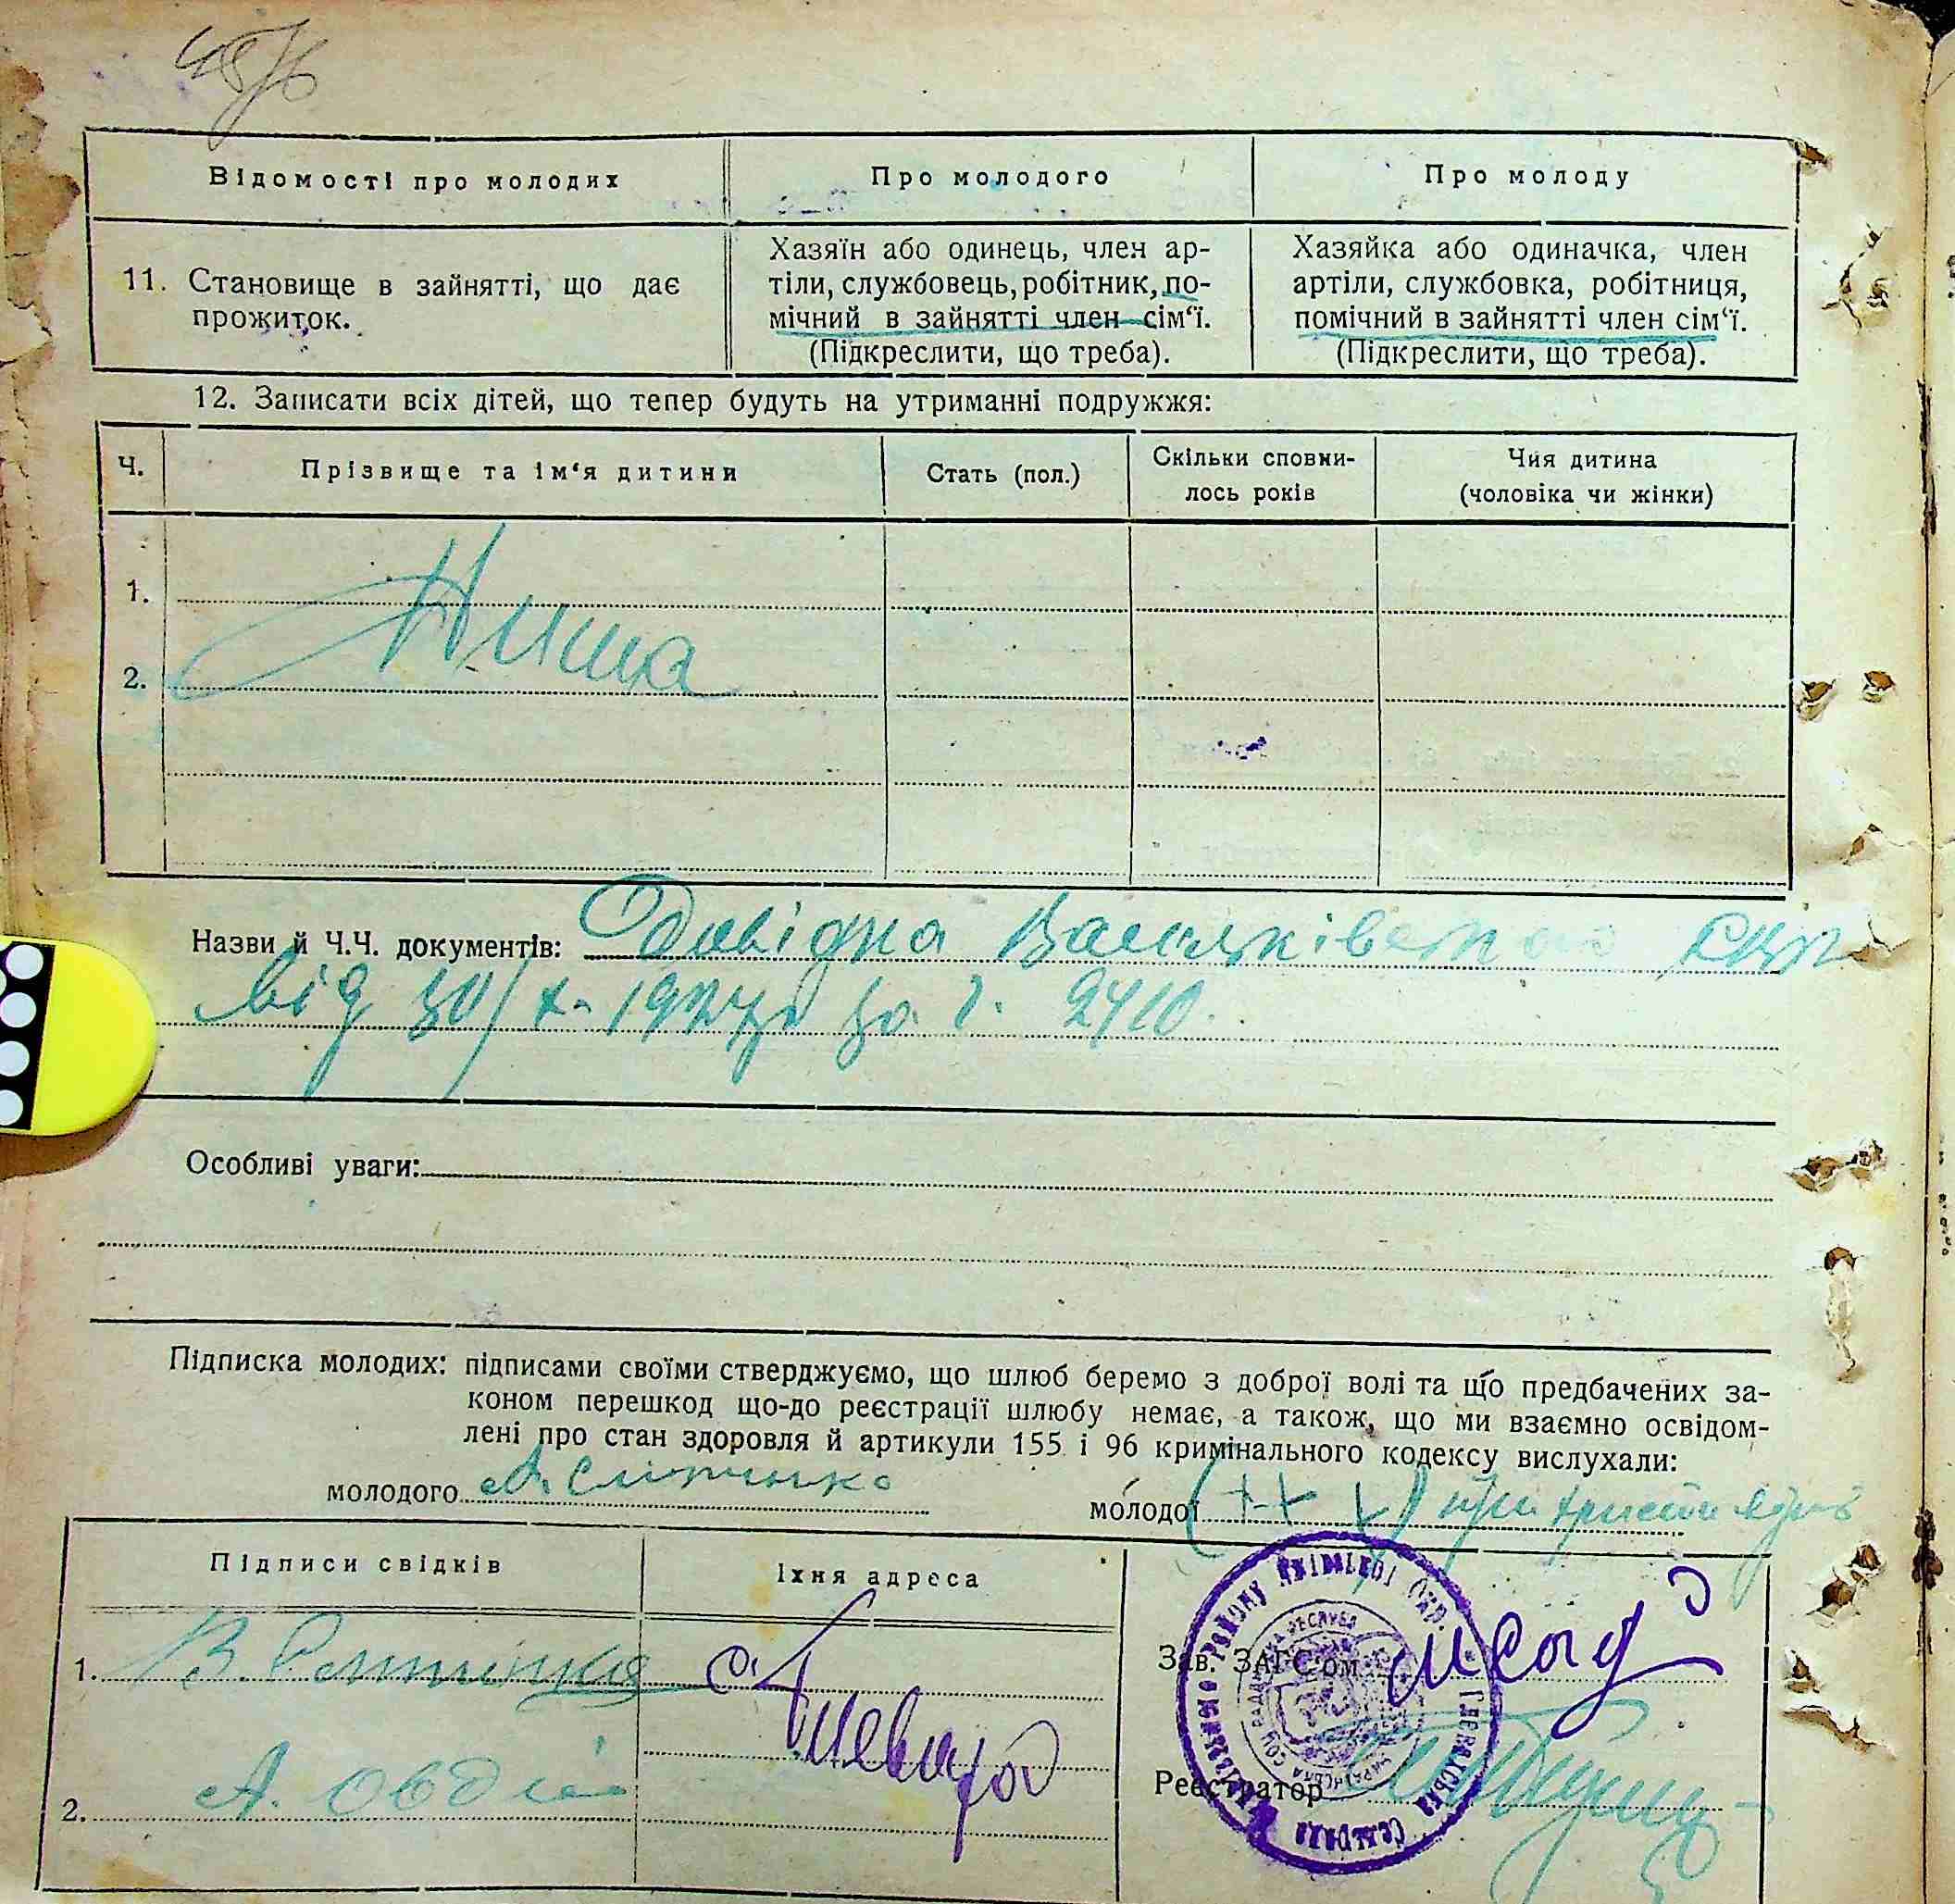 Відомості про молодих
Про молодого
Про молоду
11. Становище в зайнятті, що дає
прожиток.
Хазяїн або одинець, член ар-
тіли, службовець, робітник, по-
мічний в зайнятті член сім‘ї.
(Підкреслити, що треба).
Хазяйка або одиначка, член
артіли, службовка, робітниця,
помічний в зайнятті член сім‘ї.
(Підкреслити, що треба).
12. Записати всіх дітей, що тепер будуть на утриманні подружжя:
Ч.
Прізвище та ім‘я дитини
Стать (пол.)
Скільки сповни-
лось років
Чия дитина
(чоловіка чи жінки)
1.
2.
Назви й Ч.Ч. документів:
від 30/X- за ч. 2410.
Особливі уваги:
Підписка молодих: підписами своїми стверджуємо, що шлюб беремо з доброї волі та що предбачених за-
коном перешкод що-до реєстрації шлюбу немає, а також, що ми взаємно освідом-
лені про стан здоровля й артикули 155 і 96 кримінального кодексу вислухали:
молодого
молодої (+ + +) три хрести
Підписи свідків
Їхня адреса
1. В.
2. А. Овдій
Зав. ЗАГС‘ом
Реєстратор